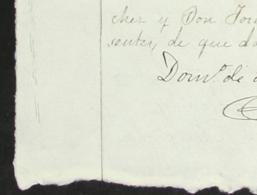 cher y Don Jor
sentes, de que do
Domo. de